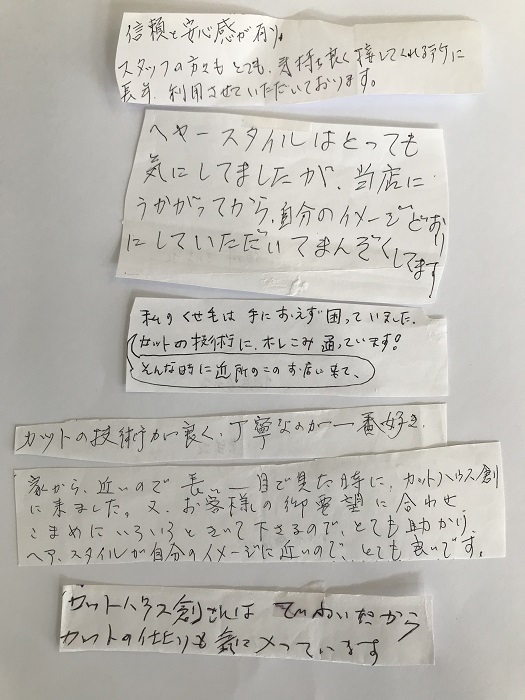 信頼と安心感が有り。
スタッフの方々もとても、気持ち良く接してくれるアケに
長年、利用させていただいております。
ヘヤースタイルはとっても
気にしてましたが、当店に
うかがってから、自分のイメージどおり
にしていただいてまんぞくしてます
私のくせ毛は手におえず困っていました。
カットの技術に、ホレこみ通っています!
そんな時に近所のこのお店に来て、
カットの技術が良く、丁寧なのが一番好き
家から、近いので長い 一目で見た時に、カットハウス創
に来ました。又、お客様の御要望に合わせ
こまめにいろいろときいて下さるので、とても助かり
ヘア、スタイルが自分のイメージに近いので、とても良いです。
カットハウス創さんは ていねいだから
カットの仕上りも気に入っています